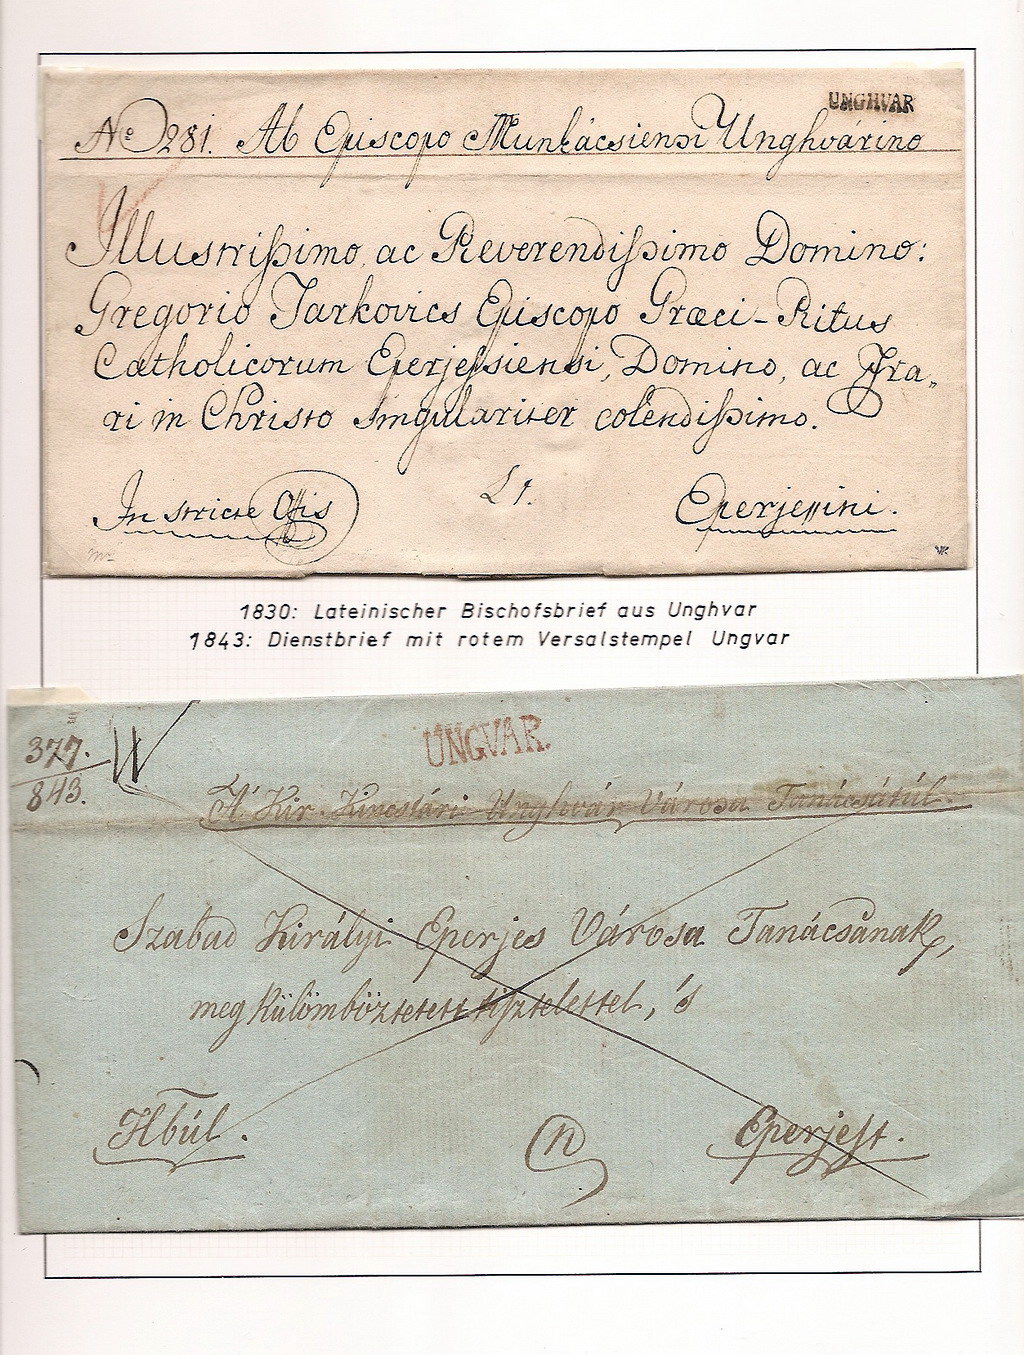 UNGHVAR
No 281. Ab Episcopo Munkácsiensi Unghvárino
Illustrissimo ac Reverendissimo Domino:
Gregorio Tarkovics Episcopo Græci-Ritus
Catholicorum Eperjessiensi, Domino, ac Fra„
ri in Christo singulariter colendissimo.
In stricte Offis
Eperjessini.
1830: Lateinischer Bischofsbrief aus Unghvar
1843: Dienstbrief mit rotem Versalstempel Ungvar
UNGVAR.
377.
843.
A' Kir. Kincstári Unghvár Városa Tanácsától.
Szabad Királyi Eperjes Városa Tanácsának,
meg külömböztetett tisztelettel, 's
Hbúl.
Eperjest.